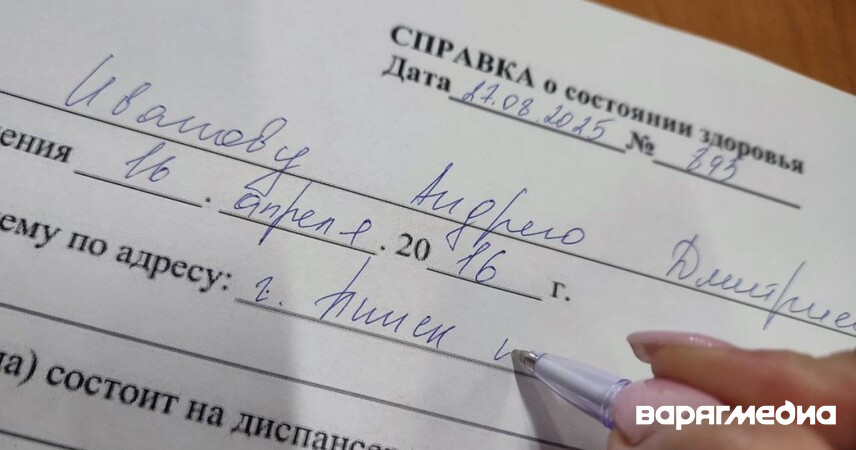 СПРАВКА о состоянии здоровья
Дата 27.08.2025 № 893
Иванову Андрею Дмитрие
ения 16. апреля. 2016 г.
ему по адресу: г. Пинск
а) состоит на диспансе
ВАРЯГМЕДИА